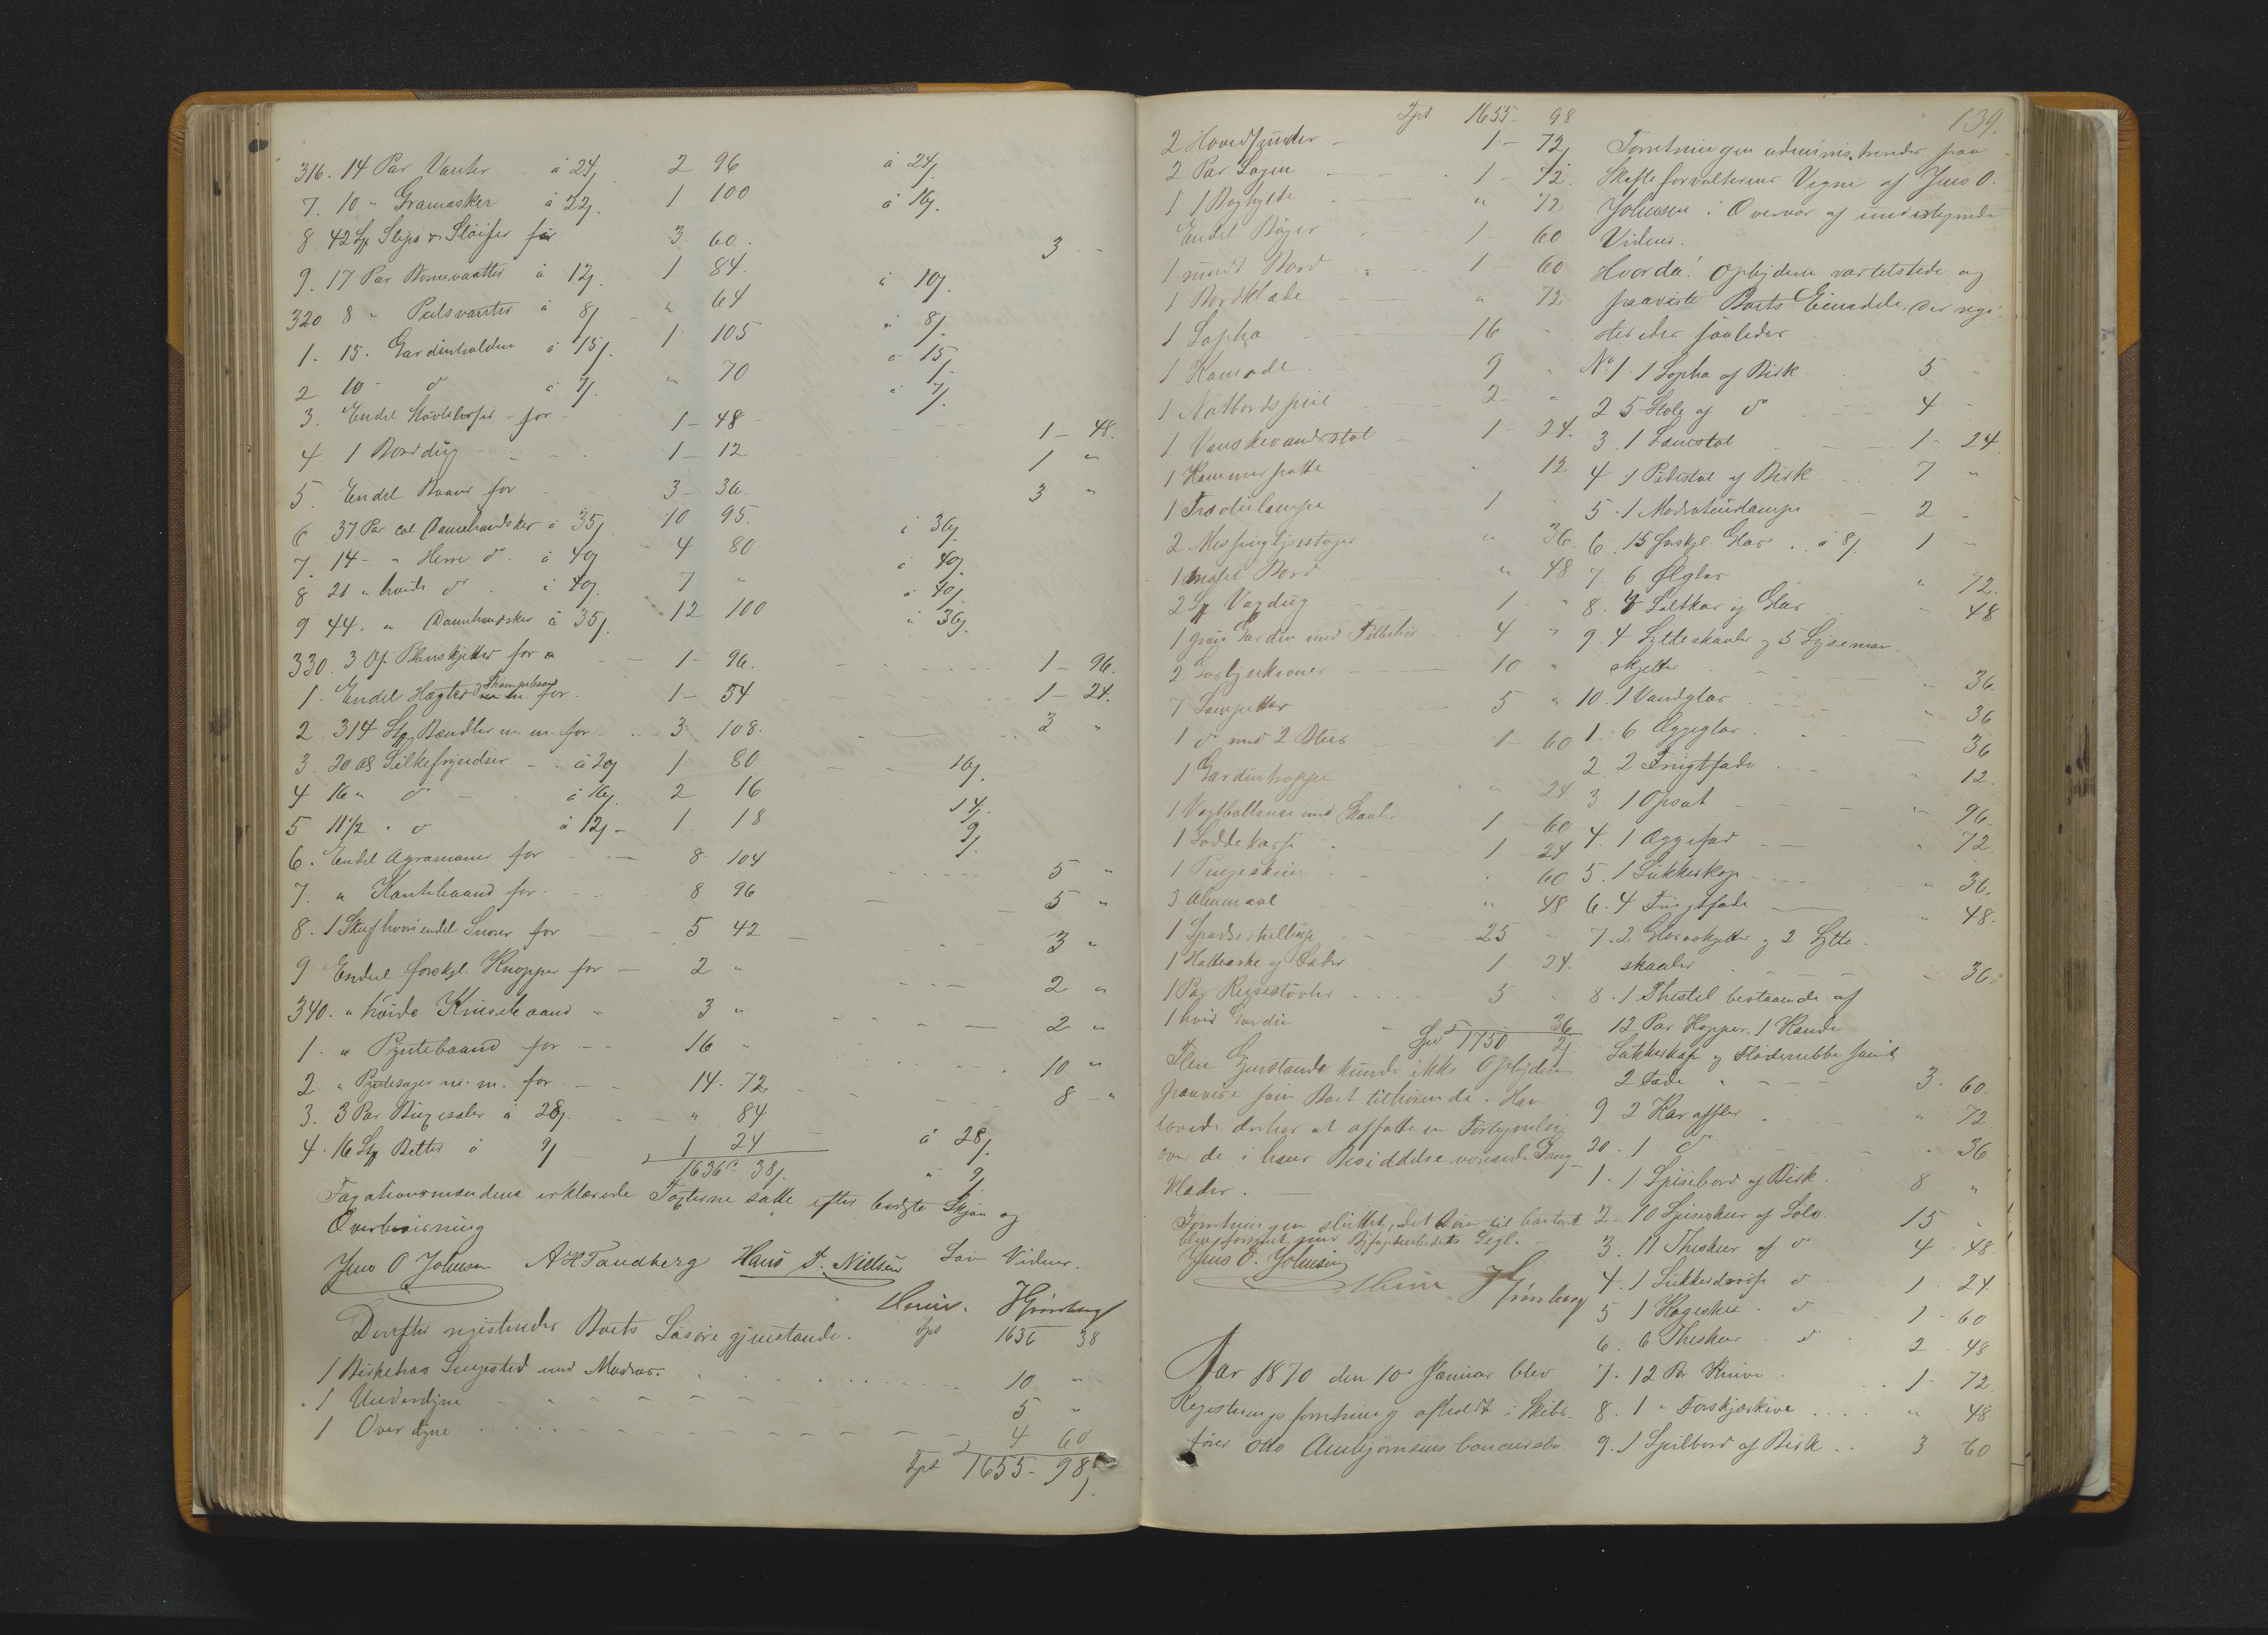 316. 14 Par Vanter à 24/ 2 96 à 24/
7. 10 " Gramasker à 22/. 1 100 à 16/.
8 42 St Slips & Sløifer for 3 60. 3 "
9. 17 Par Børnevanter à 12/. 1 84. à 10/.
320 8 " Pulsvanter à 8/ " 64 à 8/.
1. 15. Gardinholdere à 15/. 1 105 à 15/.
2 10 - do à 7/. " 70 à 7/.
3. Endel for 1 - 48 1 - 48.
4 1 Borddug 1 - 12 1 "
5. Endel for 3 - 36. 3 "
6 37 Par col Damehandsker à 35/ 10 95. à 36/.
7. 14 - " Herre do à 40/ 4 80 à 40/.
8 21 " hvide do à 40/. 7 " à 40/.
9 44. " Damehandsker à 35/. 12 100 à 36/.
330. 3 for 1 - 96. 1 - 96.
1. Endel Hægter & Strømpebaand for 1 - 54 1 - 24.
2. 314 St Bændler m. m. for 3 108. 3 "
3. 20 Al Silkefryndser à 20/ 1 80 16/.
4 16 " do à 16/. 2 16 14/.
5 11 1/2 " do à 12/ - 1 18 9/.
6. Endel Agramaner for 8 104 5 "
7. " Kantebaand for 8 96 5 "
8. 1 Skuf hvori endel Snorer for 5 42 3 "
9 Endel forskjl. Knapper for 2 " 2 "
340. " hvide Krusebaand " 3 " 2 "
1. " Pyntebaand for 16 " 10 "
2 " Pyntesager m. m. for 14. 72 8 - "
3. 3 Par à 28/. " 84 à 28/.
4. 16 St Belter à 9/ 1 24 " 9/
1636 38/.
Taxationsmændene erklærede Taxterne satte efter bedste Skjøn og
Overbeviisning
Jens O Johnsen A H Tandberg Hans F. Nielsen Som Vidner.
Derefter registreredes Boets Løsøre gjenstande. Tpt 1636 38
1 Birketræs Sengested med Madras. 10 "
1 Underdyne 5 "
1 Overdyne 4 60
Tpt 1655 - 98/.
Tpt 1655 - 98
2 Hovedpuder 1 - 72
2 Par Lagen 1 - 72.
1 Boghylde " 72
Endel Bøger 1 - 60
1 rundt Bord 1 - 60
1 Bordklæde " 72
1 Sopha 16 "
1 Komode 9 "
1 Natbordspeil 2 "
1 Vaskevandsstol 1 - 24.
1 Kammerpotte " 12
1 1 "
2 Messinglysestager " 36.
1 malet Bord " 48
2 St Voxdug 1 "
1 grøn Gardin med Tilbehør 4 "
2 Gaslysekroner 10 "
7 Lampetter 5 "
1 do med 2 Blus 1 - 60
1 Gardintrappe " 24
1 Vægtballance med Skaaler 1 - 60
1 Loddekasse 1 - 24
1 Pengeskrin " 60
3 Alenmaal " 48
1 25 -
1 Hatteæske og Læder 1 - 24.
1 Par Reisestøvler 5 "
1 hvid Gardin 36
Spd 1750 2/
Flere Gjenstande kunde ikke Opbyderen
paavise som Boet tilhørende. Han
lovede derhos at affatte en Fortegnelse
over de i hans Besiddelse værende Gang-
klæder.
Forretningen sluttet,
blev forsynet med Byfogedembedets Segl.
Jens O. Johnsen
Aar 1870 den 10de Januar blev
Registreringsforretning afholdt i Skibs-
fører Otto Anbjørnsens Concursbo.
139.
Forretningen administreredes paa
Skifteforvalterens Vegne af Jens O.
Johnsen i Overvær af undertegnede
Vidner.
Hvorda! Opbyderen var tilstede og
paaviste Boets Eiendele, der regi-
streredes saaledes
No 1. 1 Sopha af Birk 5 "
2 5 Stole af do 4 "
3. 1 Lænestol 1 - 24
4 1 Pidestal af Birk 7 "
5. 1 Moderateurlampe 2 "
6. 15 forskjl. Glas à 8/. 1 "
7. 6 Ølglas " 72.
8. 4 Saltkar og Glas " 48
9. 4 Sylteskaaler og 5 Lyseman-
skjetter " 36.
10. 1 Vandglas " 36
1. 6 Æggeglas " 36
2. 2 Frugtfade " 12.
3 1 Opsats " 96.
4. 1 Æggefad " 72
5. 1 Sukkerkop " 36.
6. 4 Frugtfade " 48.
7. 2 Glasasjetter og 2 Sylte-
skaaler " 36.
8. 1 Thestel bestaaende af
12 Par Kopper, 1 Kande
Sukkerkop og Flødenebbe samt
2 Fade 3. 60.
9 2 Karafler " 72
20. 1 do " 36
1. 1 Spisebord af Birk. 8 "
2. 10 Spiseskeer af Sølv. 15 "
3. 11 Theskeer af do 4 - 48
4. 1 do 1 24
5 1 Kageskee do 1 - 60
6. 6 Theskeer do 2 - 48
7. 12 Par Knive 1 - 72.
8. 1 " Forskjærknive " 48
9. 1 Spilbord af Birk 3 60